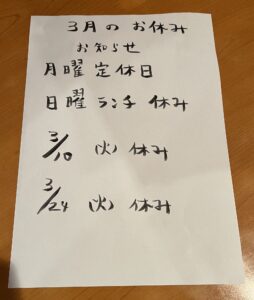 3月のお休み
お知らせ
月曜定休日
日曜ランチ休み
3/10 (火) 休み
3/24 (火) 休み